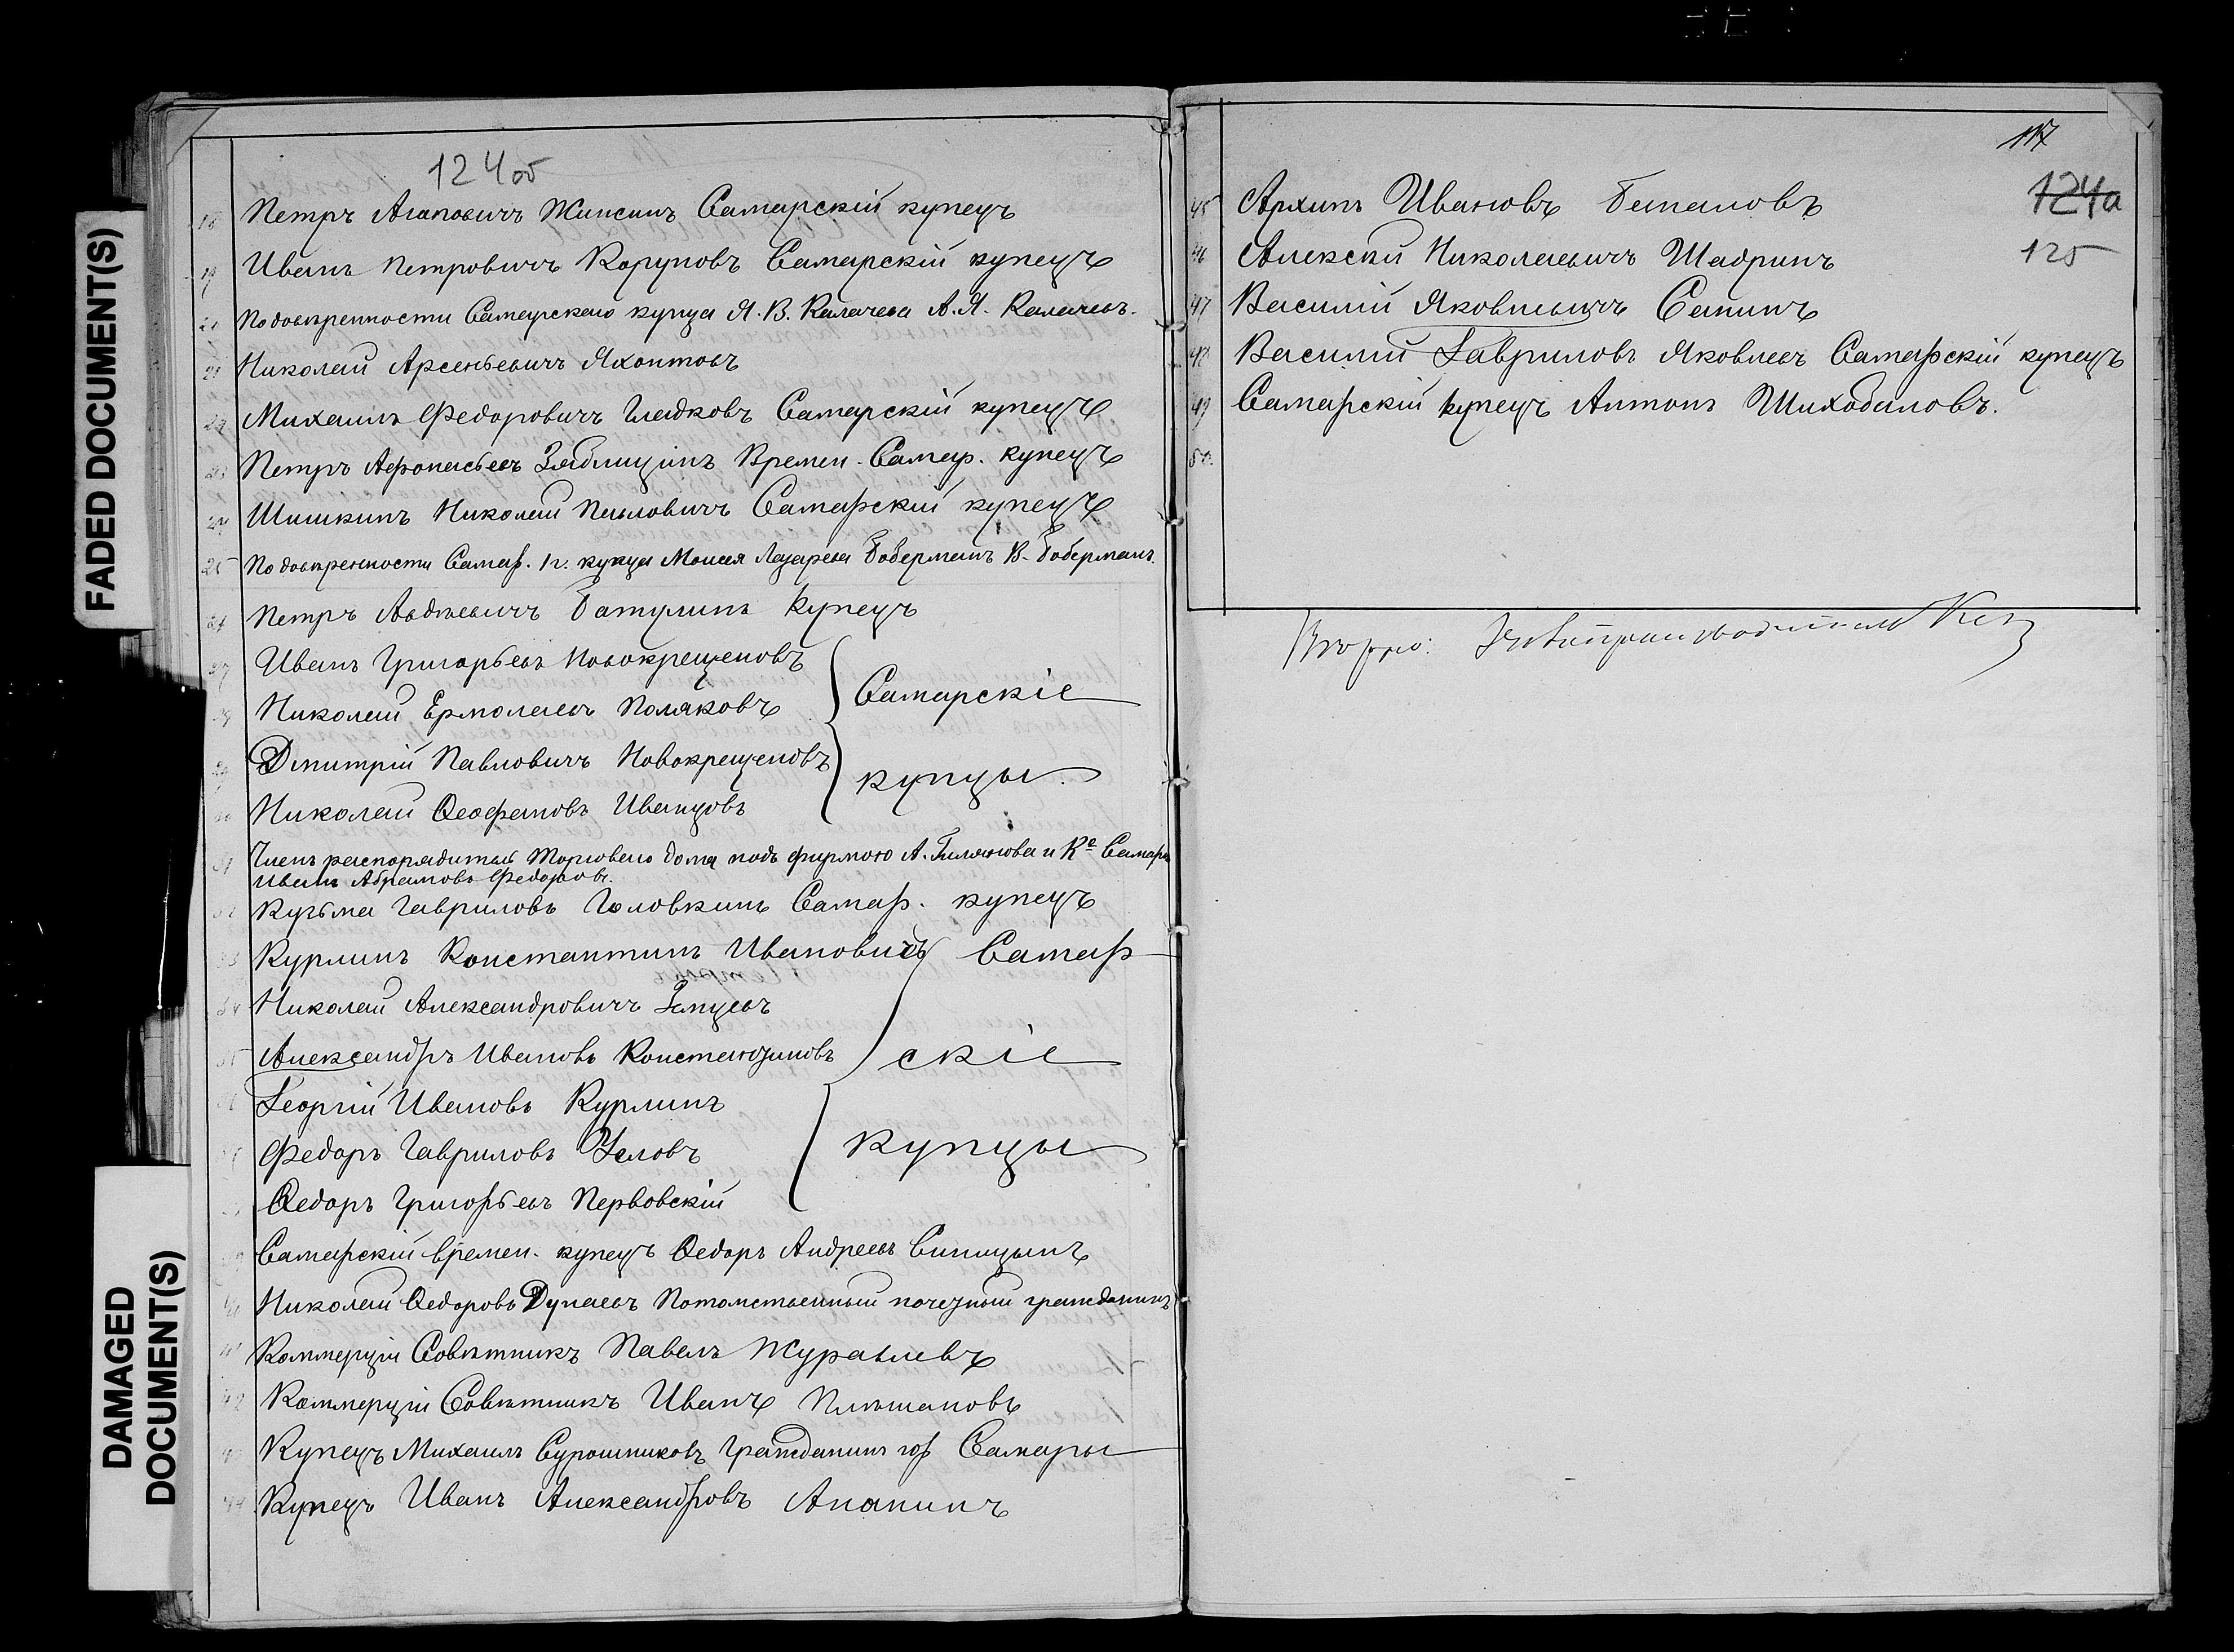 FADED DOCUMENT(S)
DAMAGED
DOCUMENT(S)
124 об
18 Петръ Агаповичъ Самарскій купецъ
19 Иванъ Петровичъ Самарскій купецъ
По довѣренности Самарскаго купца Я. В. Калачева А. Я. Калачевъ.
21 Николай Арсеньевичъ Яхонтовъ
Михаилъ Федоровичъ Гладковъ Самарскій купецъ
23 Петръ Афонасьевъ Зяблицынъ Времен. Самар. купецъ
24 Шишкинъ Николай Павловичъ Самарскій купецъ
25 По довѣренности Самар. 1 г. купца Моисея Лазарева Боберманъ В. Боберманъ.
Петръ Авдѣевичъ Батулинъ купецъ
27 Иванъ Григорьевъ Новокрещеновъ
Николай Ермолаевъ Поляковъ Самарскіе
29 Дмитрій Павловичъ Новокрещеновъ
купцы.
30 Николай Ѳеофановъ Иванцовъ
31 Членъ распорядитель Торговаго дома подъ фирмою А. и Ко Самара
Иванъ Абрамовъ Федоровъ.
32 Кузьма Гавриловъ Головкинъ Самар. купецъ
33 Курлинъ Константинъ Ивановичъ Самар
34 Николай Александровичъ
35 Александръ Ивановъ Константиновъ скіе
Георгій Ивановъ Курлинъ
Федоръ Гавриловъ Углов купцы
Ѳедоръ Григорьевъ Первовскій
39 Самарскій времен. купецъ Ѳедоръ Андреевъ Синицынъ
40 Николай Ѳедоровъ Дунаевъ Потомственный почетный гражданинъ
41 Коммерціи Совѣтникъ Павелъ Журавлевъ
42 Коммерціи Совѣтникъ Иванъ Плѣшановъ
43 Купецъ Михаилъ Сурошниковъ Гражданинъ гор Самары
44 Купецъ Иванъ Александровъ Ананинъ
117
124а
125
45 Архипъ Ивановъ Баталовъ
46 Алексѣй Николаевичъ Шадринъ
47 Василій Яковлевичъ Санинъ
48 Василій Гавриловъ Яковлевъ Самарскій купецъ
49 Самарскій купецъ Антонъ Шихобаловъ.
50.
Вѣрно: